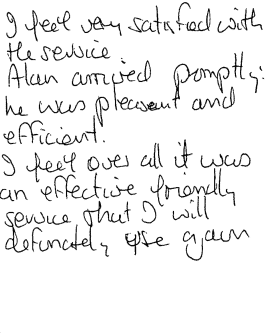 I feel very satisfied with
the service.
Alan arrived promptly:
he was pleasent and
efficient.
I feel over all it was
an effective friendly
service that I will
defunately use again